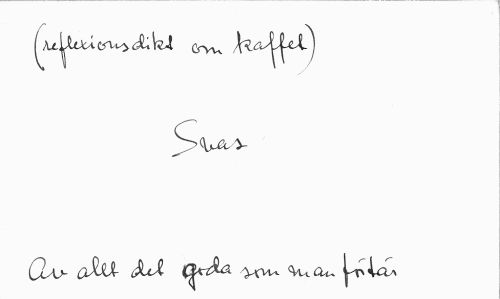 (reflexionsdikt om kaffet)
Svas
Av allt det goda som man förtär